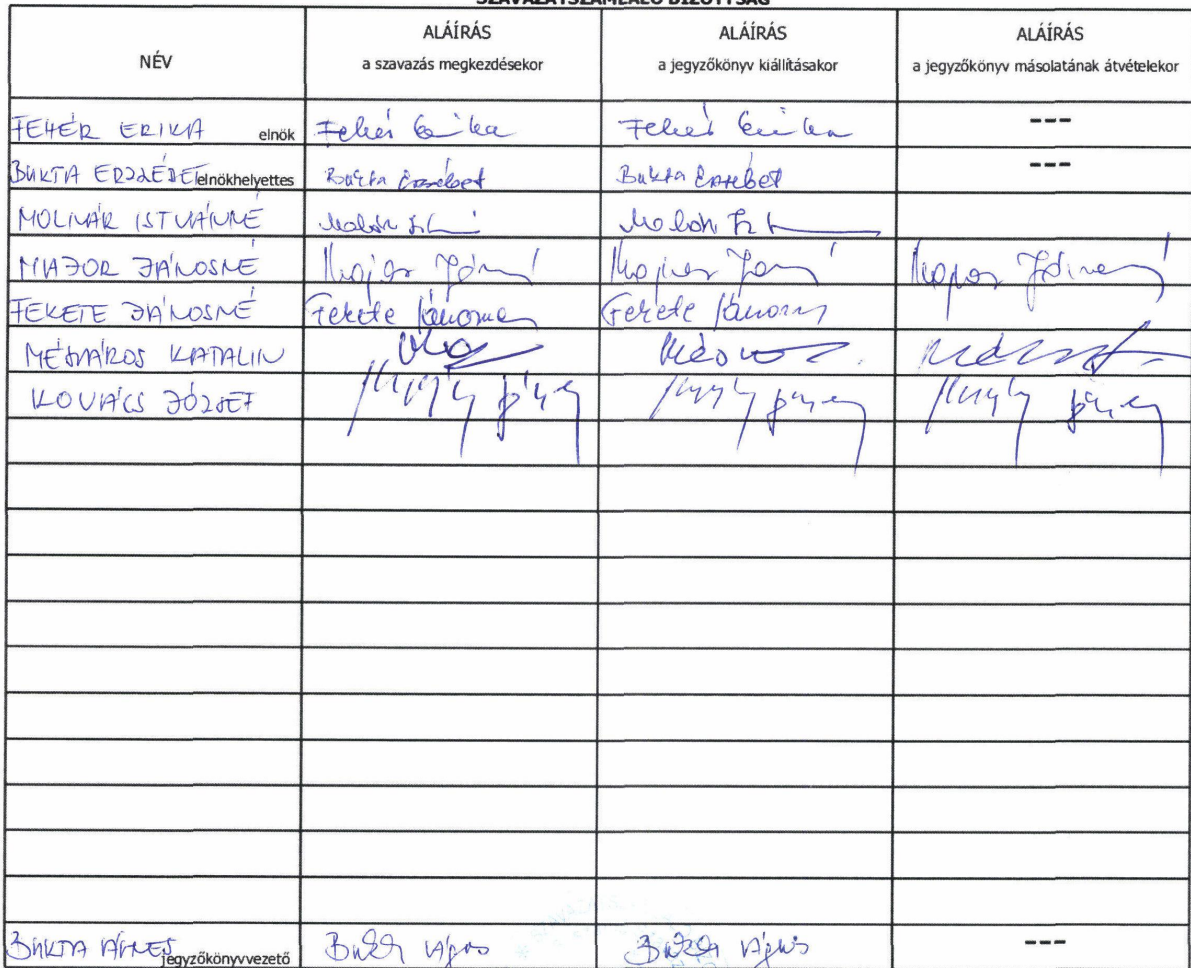 SZAVAZATSZÁMLÁLÓ BIZOTTSÁG
NÉV
ALÁÍRÁS
a szavazás megkezdésekor
ALÁÍRÁS
a jegyzőkönyv kiállításakor
ALÁÍRÁS
a jegyzőkönyv másolatának átvételekor
FEHÉR ERIKA elnök Fehér Erika Fehér Erika ---
BUKTA ERZSÉBET elnökhelyettes Bukta Erzsébet Bukta Erzsébet ---
MOLNÁR ISTVÁNNÉ
MAJOR JÁNOSNÉ Major Jánosné
FEKETE JÁNOSNÉ Fekete Jánosné Fekete Jánosné
MÉSZÁROS KATALIN
KOVÁCS JÓZSEF
BUKTA ÁGNES jegyzőkönyvvezető Bukta Ágnes Bukta Ágnes ---